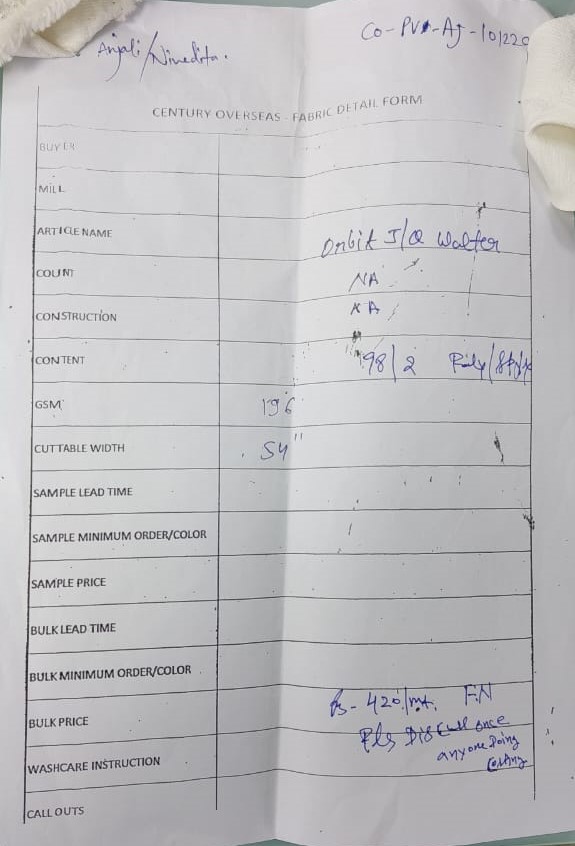 Anjali/Nivedita.
CO-PV-AJ-101220
CENTURY OVERSEAS - FABRIC DETAIL FORM
BUYER
MILL
ARTICLE NAME Orbit I/Q Walter
COUNT NA
CONSTRUCTION NA
CONTENT 98/2 Poly/
GSM 196
CUTTABLE WIDTH 54"
SAMPLE LEAD TIME
SAMPLE MINIMUM ORDER/COLOR
SAMPLE PRICE
BULK LEAD TIME
BULK MINIMUM ORDER/COLOR
BULK PRICE Rs-420/mt. F.N
Pls Discuss once
WASHCARE INSTRUCTION anyone Doing
Costing
CALL OUTS